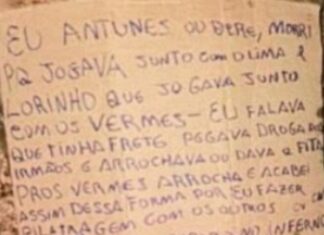 EU ANTUNES OU DERE, MORRI
PQ JOGAVA JUNTO COM O LIMA E
LORINHO QUE JOGAVA JUNTO
COM OS VERMES - EU FALAVA
QUE TINHA FRETE PEGAVA DROGA DOS
IRMÃOS E ARROCHAVA OU DAVA A FITA
PROS VERMES ARROCHA E ACABEI
ASSIM DESSA FORMA POR EU FAZER
COM OS OUTROS
NO INFERNO